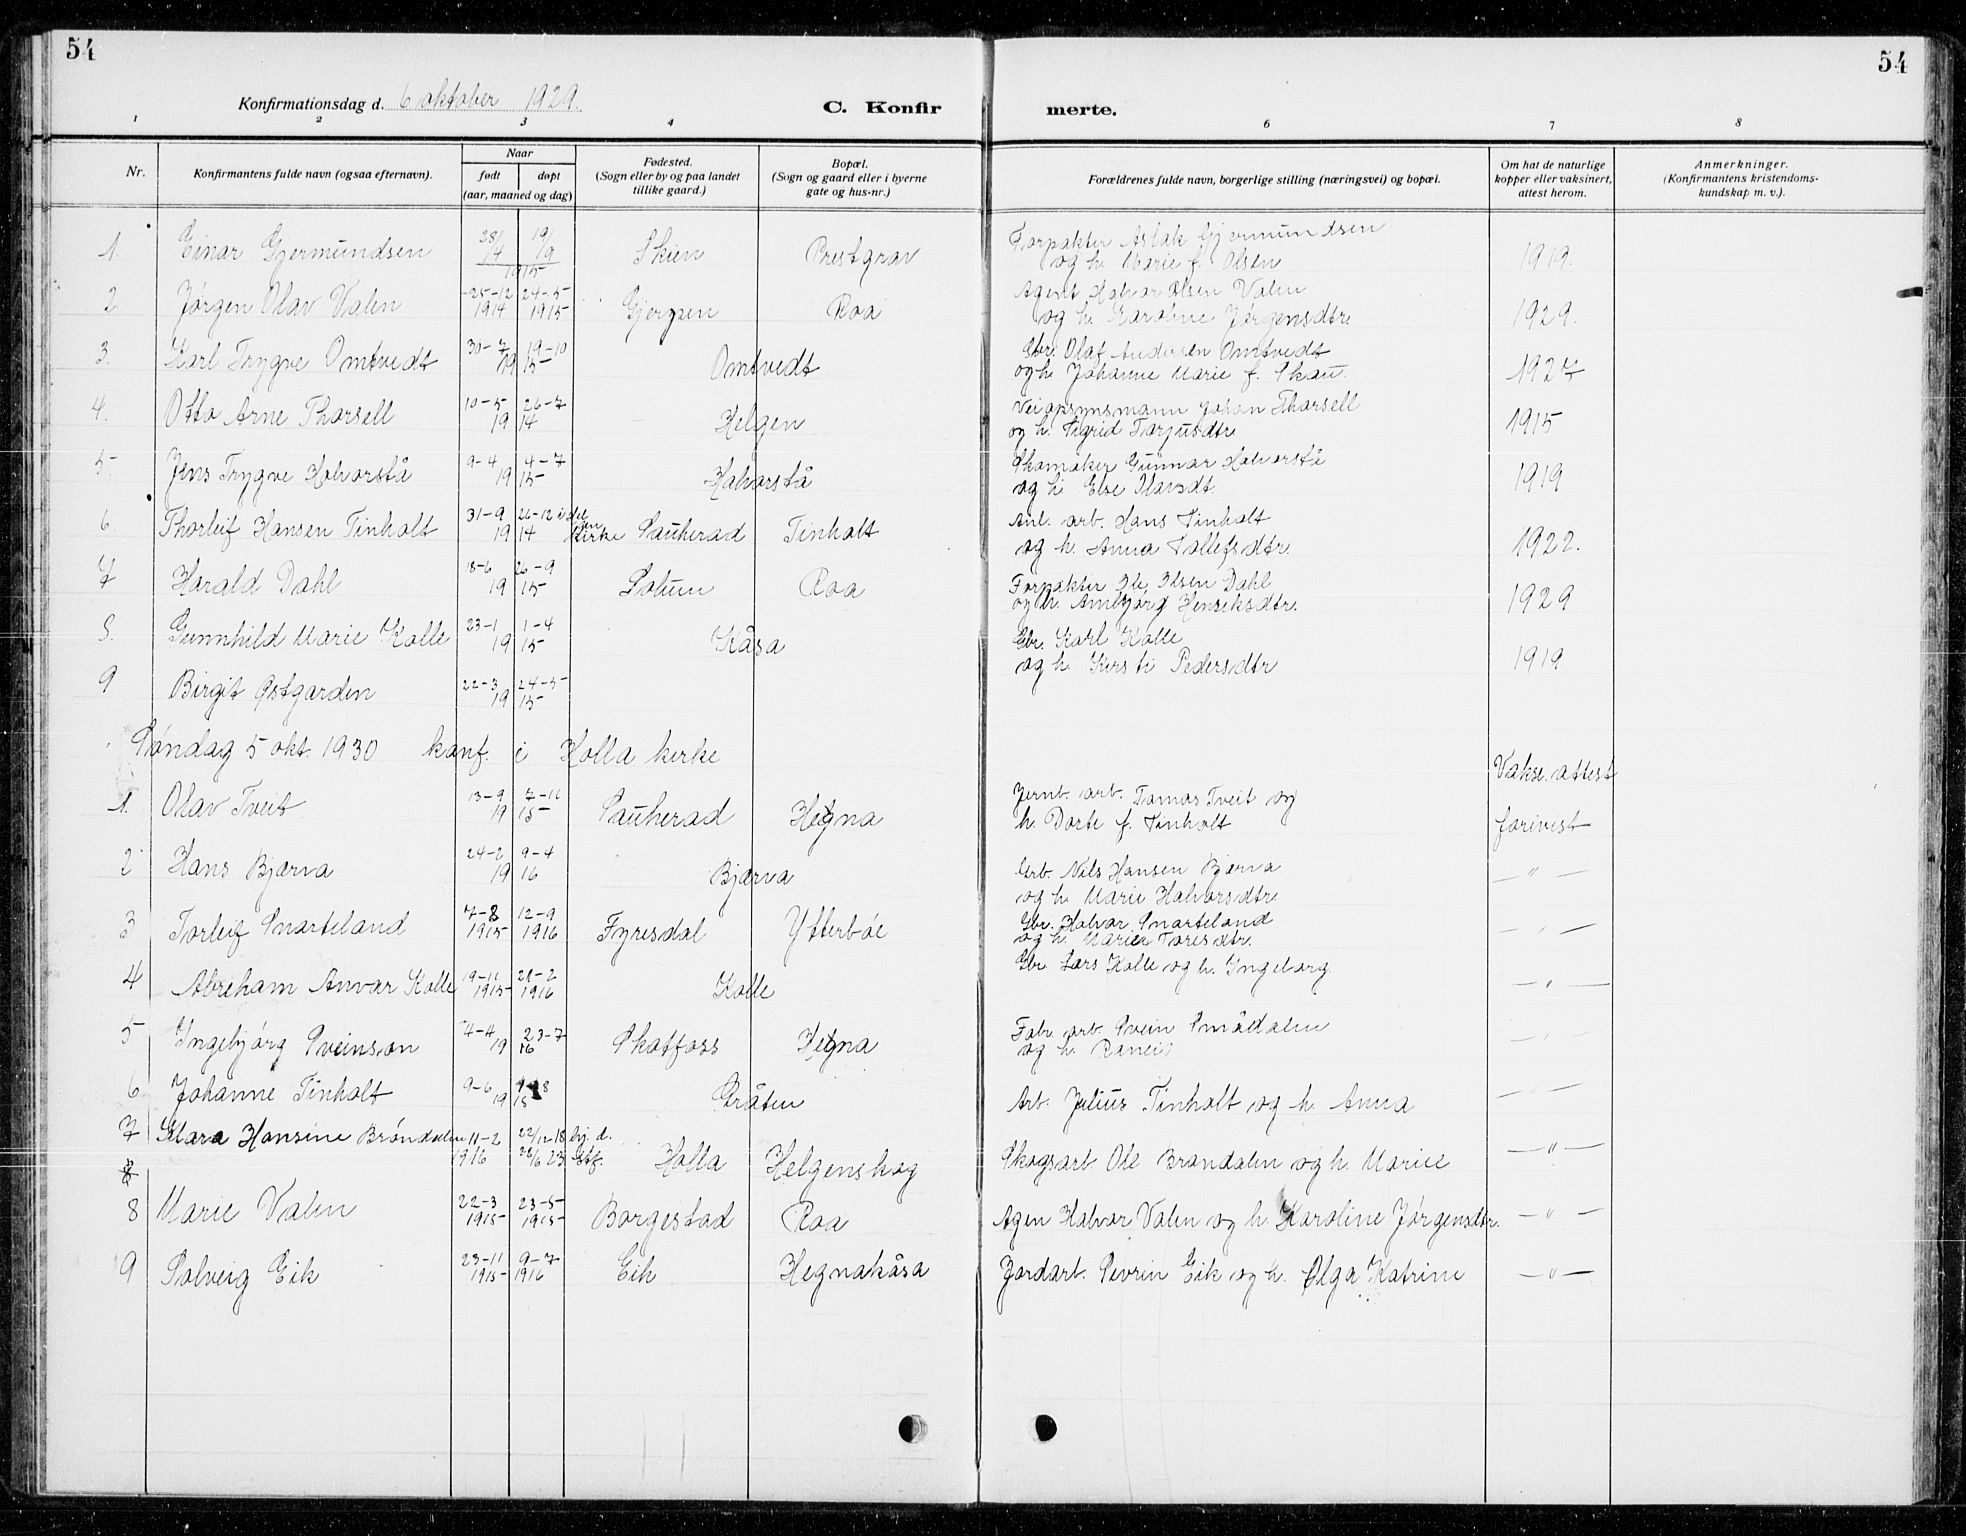 54
54
Konfirmationsdag d. 6 oktober 1929.
C. Konfir
merte.
1 2 3 4 6 7 8
Nr.
Konfirmantens fulde navn (ogsaa efternavn).
Naar
født
døpt
(aar, maaned og dag)
Fødested.
(Sogn eller by og paa landet
tillike gaard.)
Bopæl.
(Sogn og gaard eller i byerne
gate og hus-nr.)
Forældrenes fulde navn, borgerlige stilling (næringsvei) og bopæl.
Om hat de naturlige
kopper eller vaksinert,
attest herom.
Anmerkninger.
(Konfirmantens kristendoms-
kundskap m. v.).
1. Einar Gjermundsen 28/4 19/9 1915 Skien Prestgrav Forpakter Aslak Gjermundsen
og h. Marie f. Olsen 1919.
2 Jørgen Olav Valen 25-12 1914 24-5 1915 Gjerpen Roa Agent Halvor Olsen Valen
og h. Karoline Jørgensdtr. 1929.
3. Karl Trygve Omtvedt 30-7 19-10 1915 Omtvedt Gbr. Olaf Andersen Omtvedt
og h. Johanne Marie f. Skau. 1927
4. Otto Arne Thorsell 10-5 26-7 1914 Helgen Veiopsynsmann Johan Thorsell
og h. Sigrid Torjusdtr. 1915
5 Jens Trygve Halvorstå 9-4 4-7 1915 Halvorstå Skomaker Gunnar Halvorstå
og h Else Olavsdt. 1919
6. Thorleif Hansen Tinholt 31-9 26-12 i del 1914 kirke Sauherad Tinholt Anl. arb. Hans Tinholt
og h. Anna Tollefsdtr. 1922.
7 Harald Dahl 18-6 26-9 1915 Solum Roa Forpakter Ole Olsen Dahl
og h. Ambjørg Henriksdtr. 1929
8. Gunnhild Marie Kolle 23-1 1-4 1915 Kåsa Gbr. Karl Kolle
og h. Kirsti Pedersdtr 1919
9 Birgit Østgarden 22-3 24-5 1915
Søndag 5 okt. 1930 konf. i Holla kirke
Vakse. attest
1. Olav Tveit 13-9 7-11 1915 Sauherad Hegna Jernb. arb. Tomas Tveit og
h. Dorte f. Tinholt forevist
2 Hans Bjærva 24-2 9-4 1916 Bjærva Grb. Nils Hansen Bjerva
og h. Marie Halvorsdtr. — " —
3 Torleif Snarteland 7-8 1915 12-9 1916 Fyresdal Ytterbøe Gbr. Halvor Snarteland
og h. Marie Toresdtr. — " —
4 Abreham Anvar Kolle 19-11 1915 28-2 1916 Kolle Gbr Lars Kolle og h. Ingeborg — " —
5 Ingebjørg Sveinson 4-4 23-7 1916 Skotfoss Hegna Fabr. arb. Svein Smådalen
og h. — " —
6 Johanne Tinholt 9-6 1915 Gråten Arb. Julius Tinholt og h. Anna — " —
7 Klara Hansine Brøndalen 11-2 1916 22/12-18 hj. d. 28/6 23 stf. Holla Helgenskog Skogsarb. Ole Brøndalen og h. Marie — " —
8 Marie Valen 22-3 1915 23-5 1915 Borgestad Roa Agen Halvor Valen og h. Karoline Jørgensdtr. — " —
9 Solveig Eik 23-11 1915 9-7 1916 Eik Hegnakåsa Jordarb. Sevrin Eik og h. Olga Katrine — " —